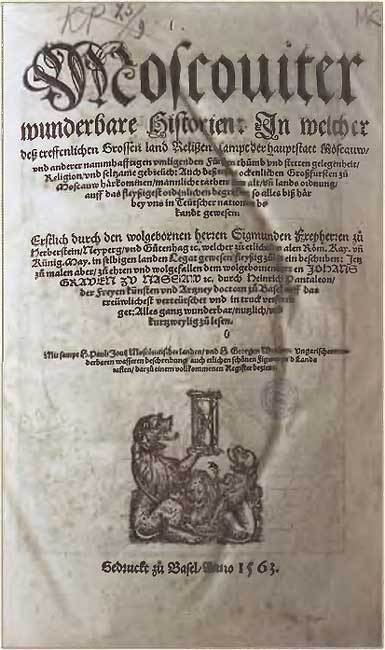 Moscouiter
wunderbare Historien: In welcher
deß treffenlichen Grossen land Reüßen sampt der hauptstatt Moscauw/
vnd anderer nammhafftigen vmligenden Fürstenthumb vnd stetten gelegenheit/
Religion/vnd seltzame gebreüch: Auch deß erschrockenlichen Großfürsten zu
Moscauw härkommen/mannliche gewalt/vnd lands ordnung/
auff das fleyßigest ordenlichen begriffen: so alles biß här
bey vns in Teütscher nation vnbe
kandt gewesen.
Erstlich durch den wolgebornen herren Sigmunden Freyherren zů
Herberstein/Neyperg/vnd Gütenhag ꝛc. welcher zů etlichen malen Röm. Kay. vñ
Künig. May. in selbigen landen Legat gewesen/fleyßig
zů malen aber/zů ehren vnd wolgefallen dem wolgebornen herren IOHANS
GRAVEN ZV NASSAW ꝛc. durch Heinrich Pantaleon/
der Freyen künsten vnd Artzney doctorn zů Basel auff das
treüwlichest verteütschet vnd in truck verfer
get: Alles gantz wunderbar/nutzlich/vnd
kurtzweylig zů lesen.
Mit sampt H. Pauli Jouij Moscouitischer landen/vnd H. Georgen Ungarischer
derbaren wasseren beschreibung/auch etlichen schönen Figuren vnd Landt
taflen/darzů einem vollkommenen Register
Getruckt zů Basel/Anno 1563.